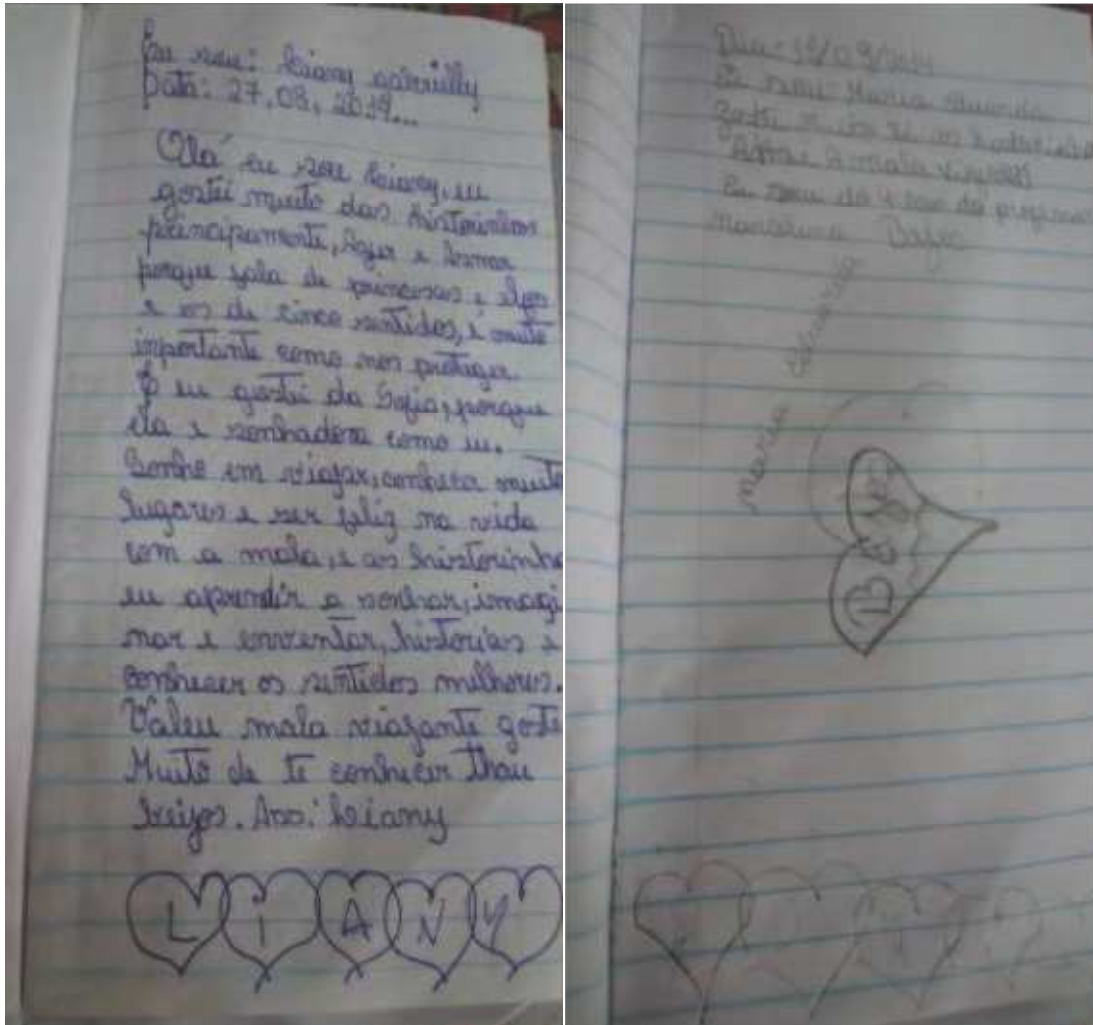 Eu sou: Liany
Data: 27, 08, 2019...
Olá eu sou Liany, eu
gostei muito das historinhas
principamente, Azur e Asmar
porque fala de princesas e
e os de cinco sentidos, é muito
importante como nos proteger.
E eu gostei da Sofia, porque
ela e sonhadora como eu.
Sonho em viajar, conhecer muito
lugares e ser feliz na vida
com a mala, e as historinha
eu aprendir a sonhar, imagi
nar e enventar, historias e
conhecer os sentidos milhores.
Valeu mala viajante goste
Muito de te conhecer thau
beijos. Ass: Liany
L I A N Y
Dia:
Eu sou Maria Eduarda
a mala
Eu sou do 4 ano da
maria eduarda
Beijos